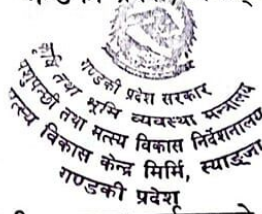 गण्डकी प्रदेश सरकार
कृषि तथा भूमि व्यवस्था मन्त्रालय
पशुपन्छी तथा मत्स्य विकास निर्देशनालय
मत्स्य विकास केन्द्र मिर्मि, स्याङ्जा
गण्डकी प्रदेश